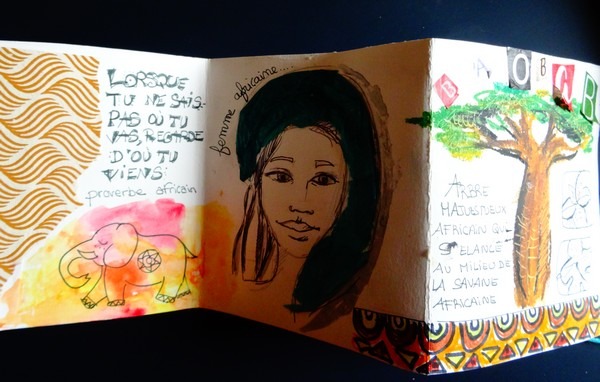 LORSQUE
TU NE SAIS
PAS OÙ TU
VAS, REGARDE
D'OÙ TU
VIENS
proverbe africain
femme africaine....
B A O B A B
ARBRE
MAJESTUEUX
AFRICAIN QUI
S'ELANCE
AU MILIEU DE
LA SAVANE
AFRICAINE